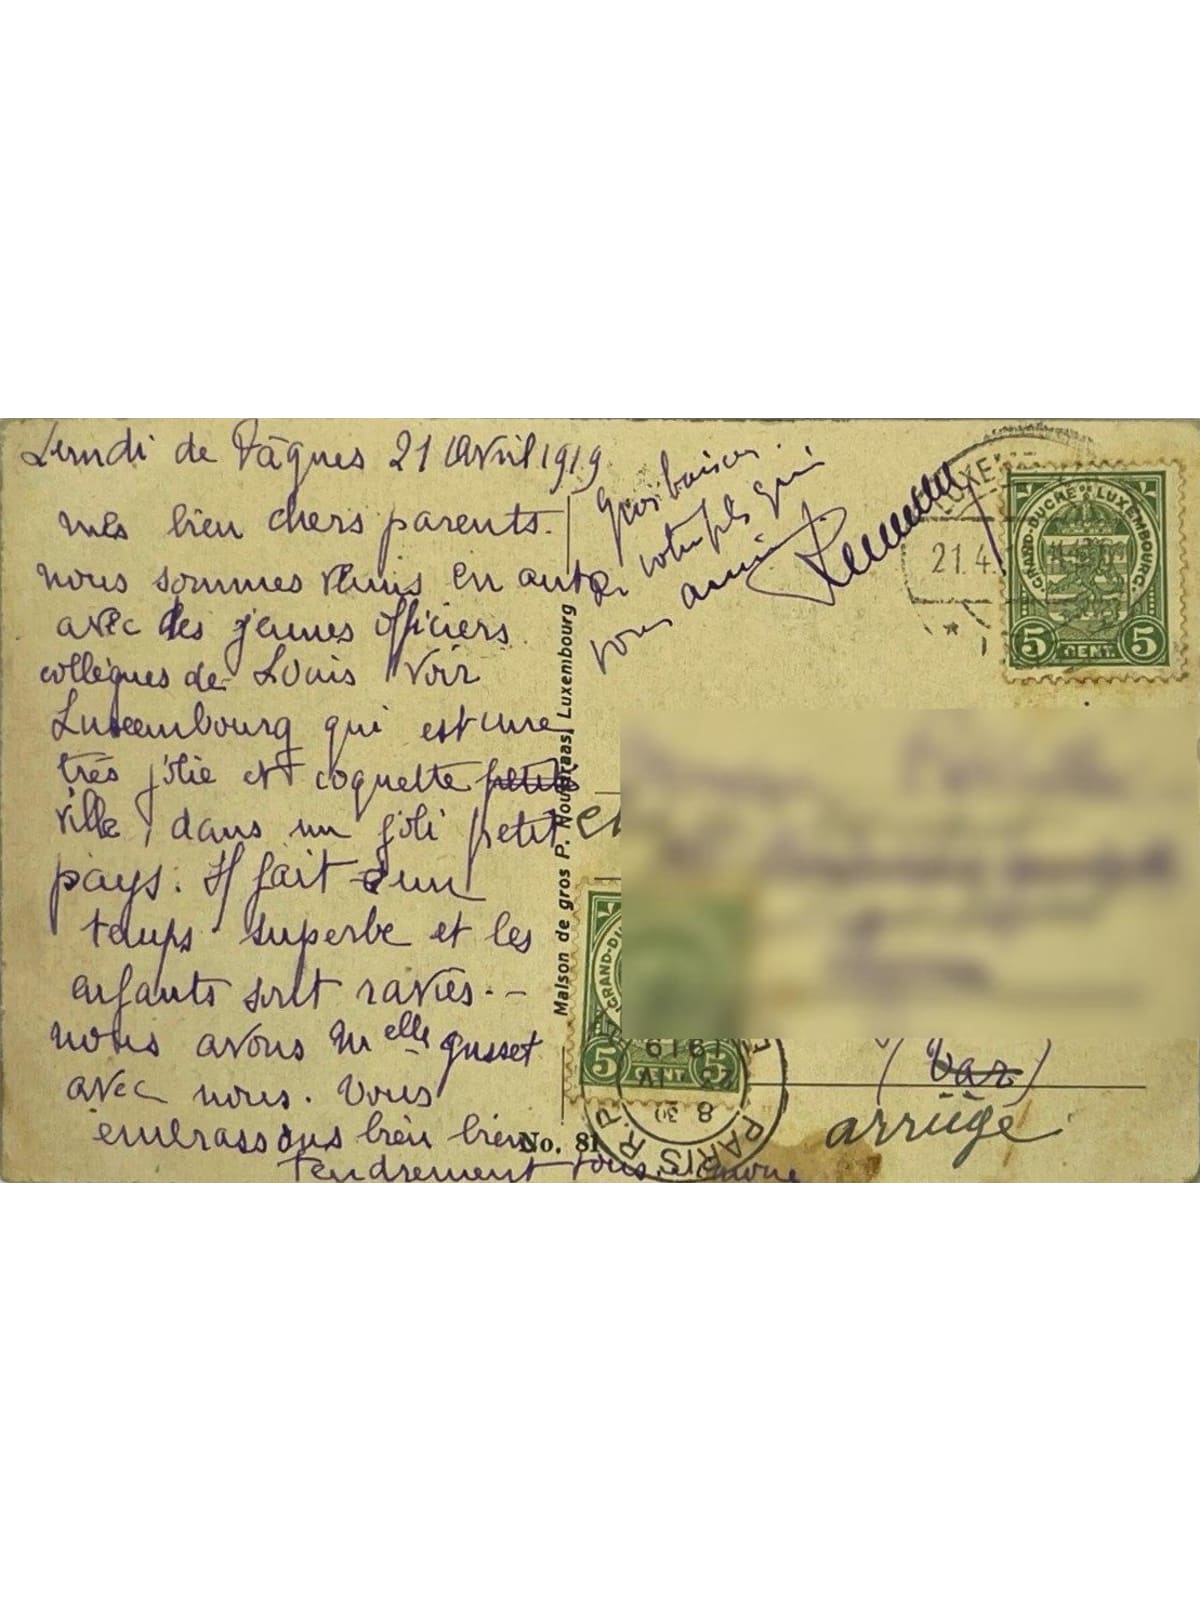 Lundi de Pâques 21 Avril 1919
mes bien chers parents.
nous sommes venus en auto
avec des jeunes officiers
collègues de Louis voir
Luxembourg qui est une
très jolie et coquette petite
ville, dans un joli petit
pays. Il fait un
temps superbe et les
enfants sont ravies. -
nous avons Melle Gusset
avec nous. Vous
embrassons bien bien
tendrement tous.
Gros baisers
de votre fils qui
vous aime
LUXEM
21.4.
GRAND-DUCHÉ DE LUXEMBOURG
5 CENT. 5
Maison de gros P. Houstraas, Luxembourg
No. 81
GRAND-DU
5 CENT 5
PARIS R.P.
8 30
IV
1919
(Var)
arriège